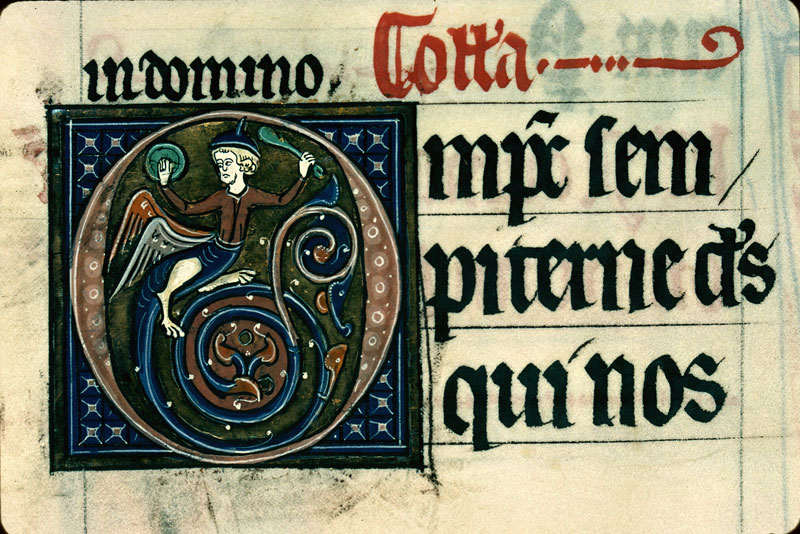 in domino. Coll'a.
Omp̄s sem
piterne d's
qui nos